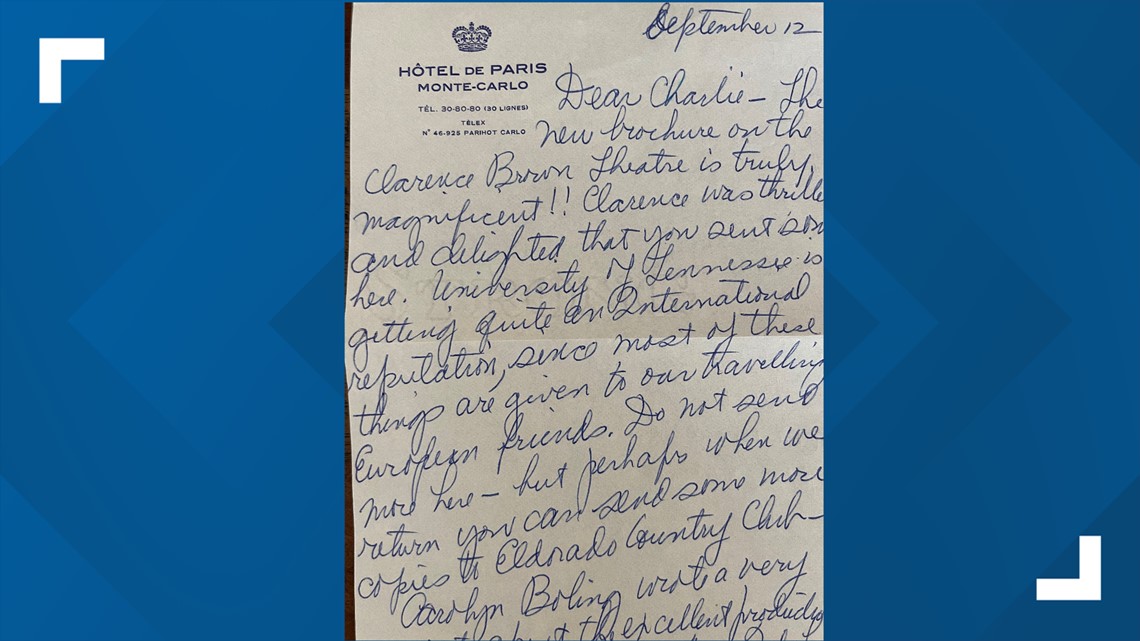 September 12
HÔTEL DE PARIS
MONTE-CARLO
TÉL. 30-80-80 (30 LIGNES)
TÉLEX
N° 46-925 PARIHOT CARLO
Dear Charlie — The
new brochure on the
Clarence Brown Theatre is truly
magnificent!! Clarence was thrille
and delighted that you sent som
here. University of Tennessee is
getting quite an International
reputation, since most of these
things are given to our travelling
European friends. Do not send
more here — but perhaps when we
return you can send some more
copies to Eldorado Country Club —
Carolyn Boling wrote a very
about the excellent productio